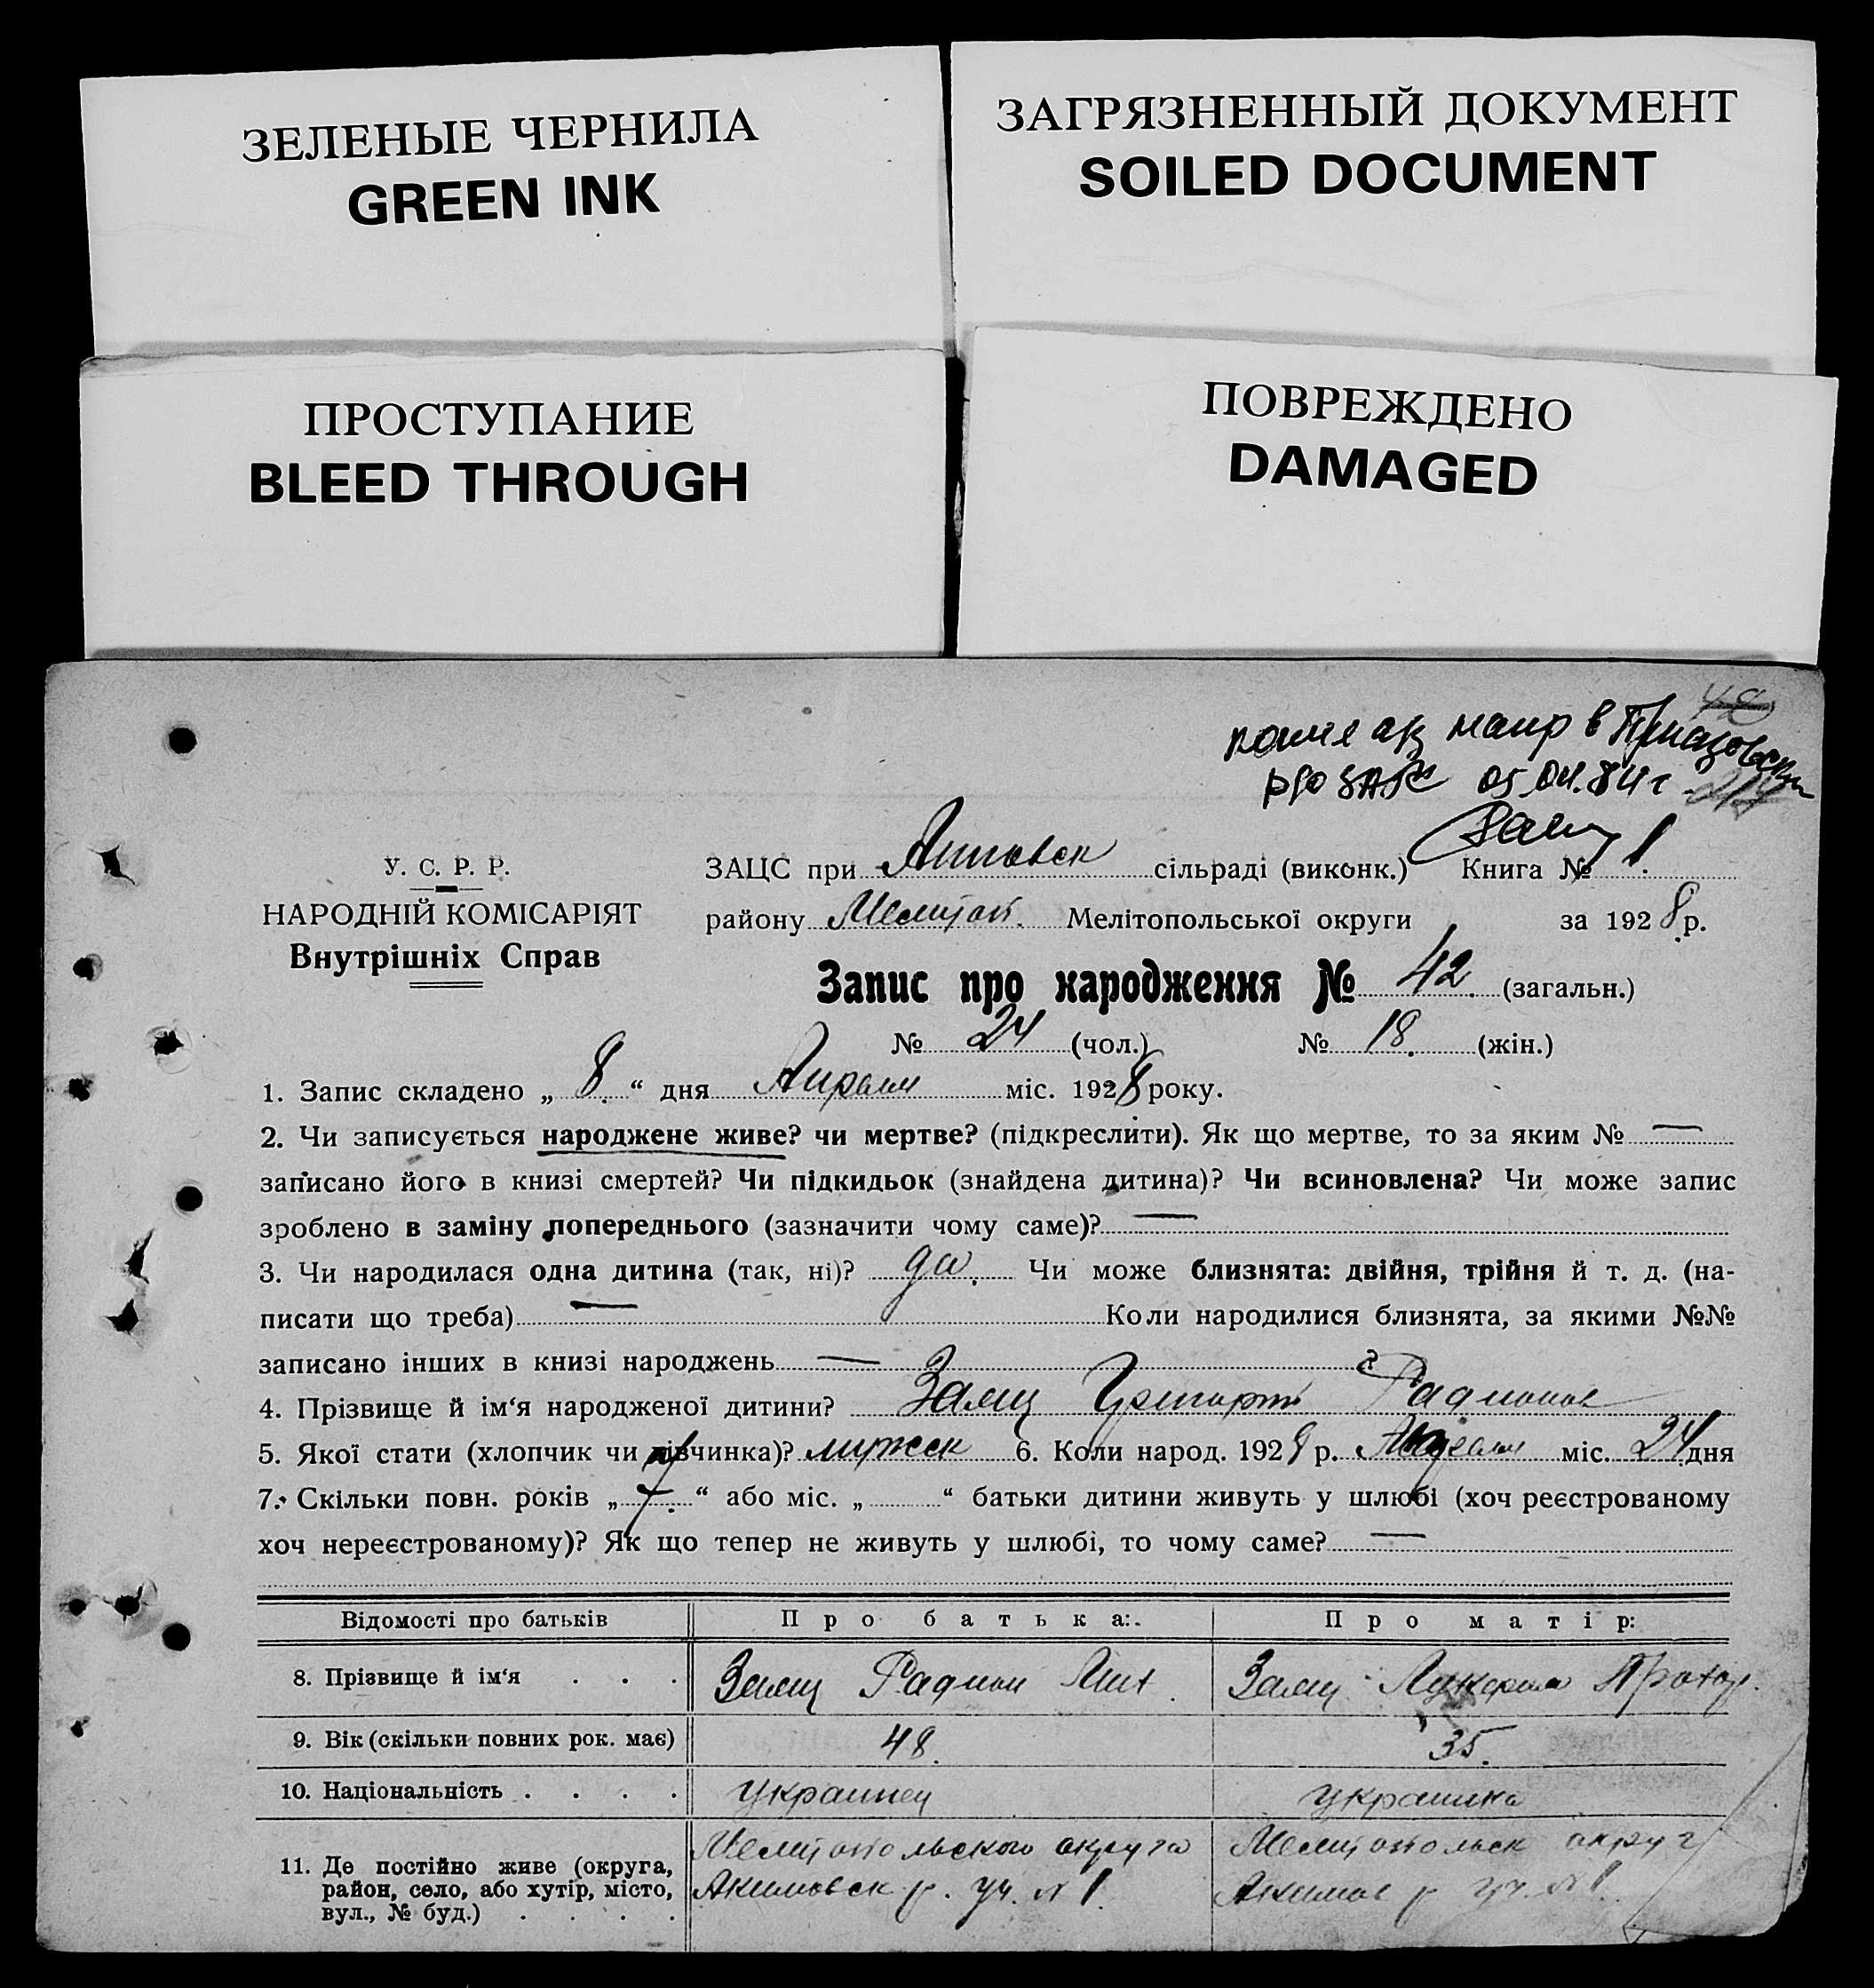 ЗЕЛЕНЫЕ ЧЕРНИЛА
GREEN INK
ЗАГРЯЗНЕННЫЙ ДОКУМЕНТ
SOILED DOCUMENT
ПРОСТУПАНИЕ
BLEED THROUGH
ПОВРЕЖДЕНО
DAMAGED
48
в Приазовский
ЗАГС 05.04.84 г.
У. С. Р. Р.
НАРОДНІЙ КОМІСАРІЯТ
Внутрішніх Справ
ЗАЦС при сільраді (виконк.) Книга № 1.
району Мелитоп. Мелітопольської округи за 1928 р.
Запис про народження № 42. (загальн.)
№ 24 (чол.) № 18. (жін.)
1. Запис складено „ 8. “ дня Апреля міс. 1928 року.
2. Чи записується народжене живе? чи мертве? (підкреслити). Як що мертве, то за яким № —
записано його в книзі смертей? Чи підкидьок (знайдена дитина)? Чи всиновлена? Чи може запис
зроблено в заміну попереднього (зазначити чому саме)? —
3. Чи народилася одна дитина (так, ні)? да. Чи може близнята: двійня, трійня й т. д. (на-
писати що треба) — Коли народилися близнята, за якими №№
записано інших в книзі народжень — ?
4. Прізвище й ім‘я народженої дитини? Заяц Григорий Радионов
5. Якої стати (хлопчик чи дівчинка)? мужск 6. Коли народ. 1928 р. міс. 24 дня
7. Скільки повн. років „ 7. “ або міс. „ “ батьки дитини живуть у шлюбі (хоч реєстрованому
хоч нереєстрованому)? Як що тепер не живуть у шлюбі, то чому саме? —
Відомості про батьків Про батька: Про матір:
8. Прізвище й ім‘я . . . Заяц Радион Заяц Лукерия
9. Вік (скільки повних рок. має) 48. 35.
10. Національність . . . . Украинец Украинка
11. Де постійно живе (округа, район, село, або хутір, місто, вул., № буд.) . . . .
Мелитопольского округа
Акимовск р. уч. № 1.
Мелитопольск округ
Акимов р уч. № 1.